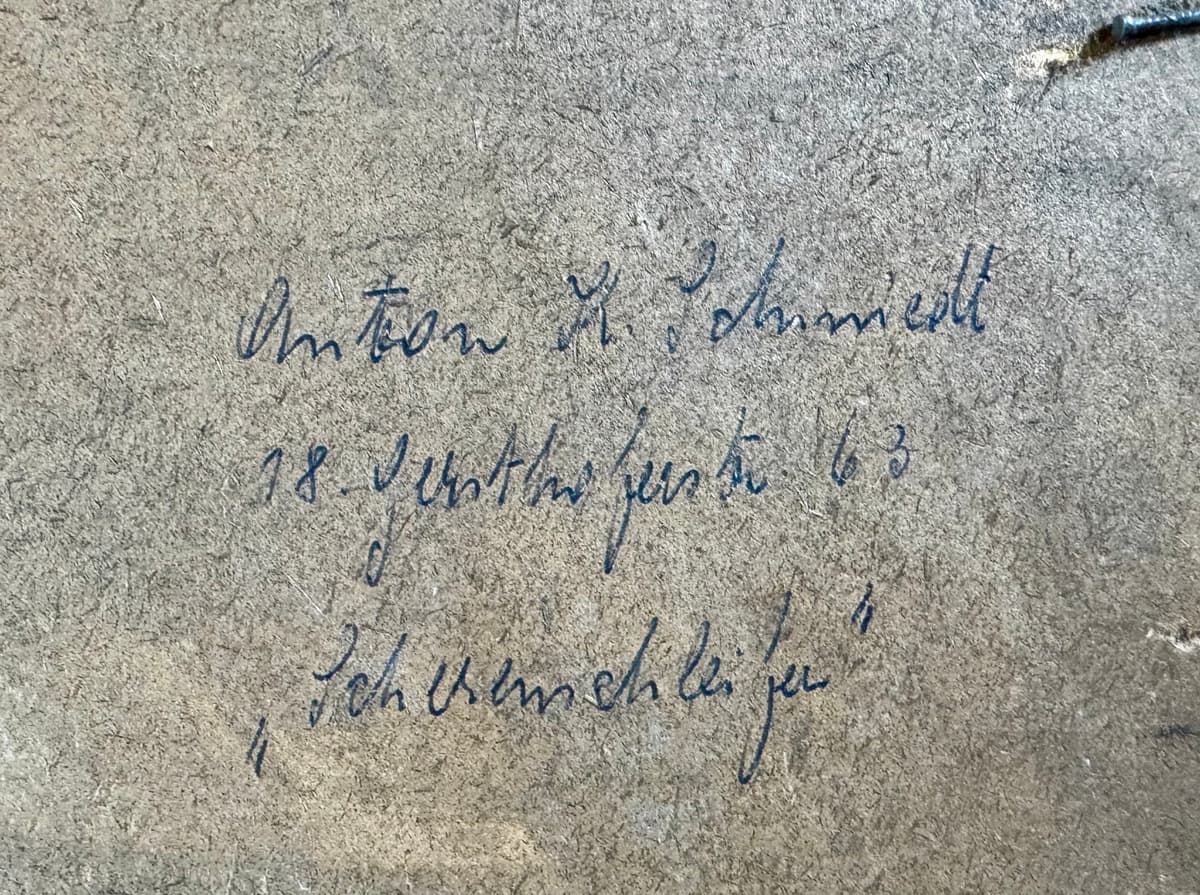 Anton K. Schmiedt
18. Gersthoferstr. 63
„Scherenschleifer"